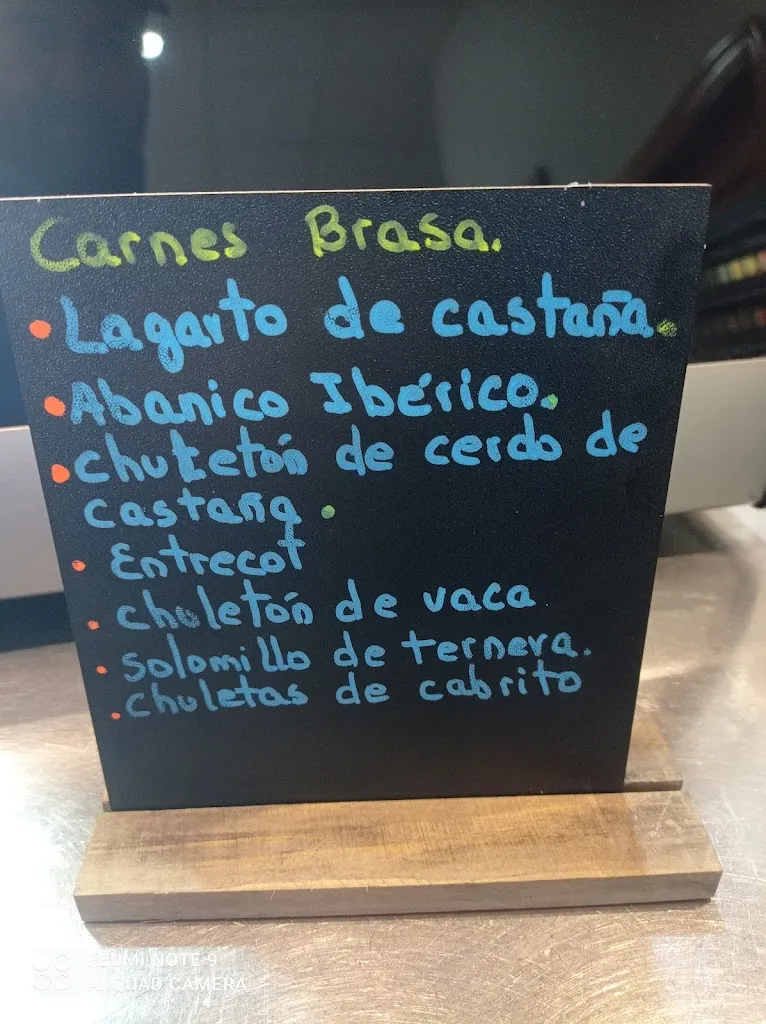 Carnes Brasa.
• Lagarto de castaña.
• Abanico Ibérico.
• chuletón de cerdo de
castaña.
• Entrecot
• chuletón de vaca
• solomillo de ternera.
• chuletas de cabrito
REDMI NOTE 9
AI QUAD CAMERA